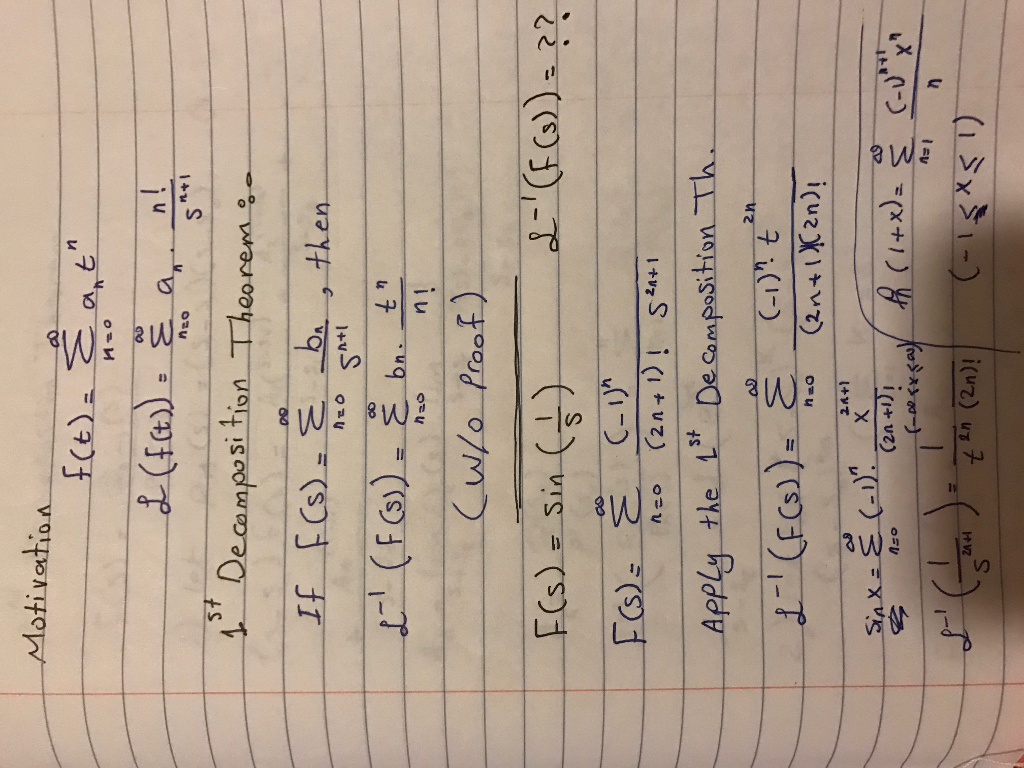 Motivation
f(t) = ∑_{n=0}^{∞} a_n t^n
ℒ(f(t)) = ∑_{n=0}^{∞} a_n . n!/s^{n+1}
1st Decomposition Theorem:
If F(s) = ∑_{n=0}^{∞} b_n/s^{n+1}, then
ℒ^{-1}(F(s)) = ∑_{n=0}^{∞} b_n . t^n/n!
(W/o Proof)
F(s) = sin(1/s) ℒ^{-1}(F(s)) = ??.
F(s) = ∑_{n=0}^{∞} (-1)^n/((2n+1)! s^{2n+1})
Apply the 1st Decomposition Th.
ℒ^{-1}(F(s)) = ∑_{n=0}^{∞} (-1)^n . t^{2n}/((2n+1)!(2n)!)
Sin x = ∑_{n=0}^{∞} (-1)^n . x^{2n+1}/(2n+1)! (-∞<x<∞)
ln(1+x) = ∑_{n=1}^{∞} (-1)^{n+1} x^n/n
ℒ^{-1}(1/s^{2n+1}) = 1/(t^{2n} (2n)!)
(-1 ≤ x ≤ 1)